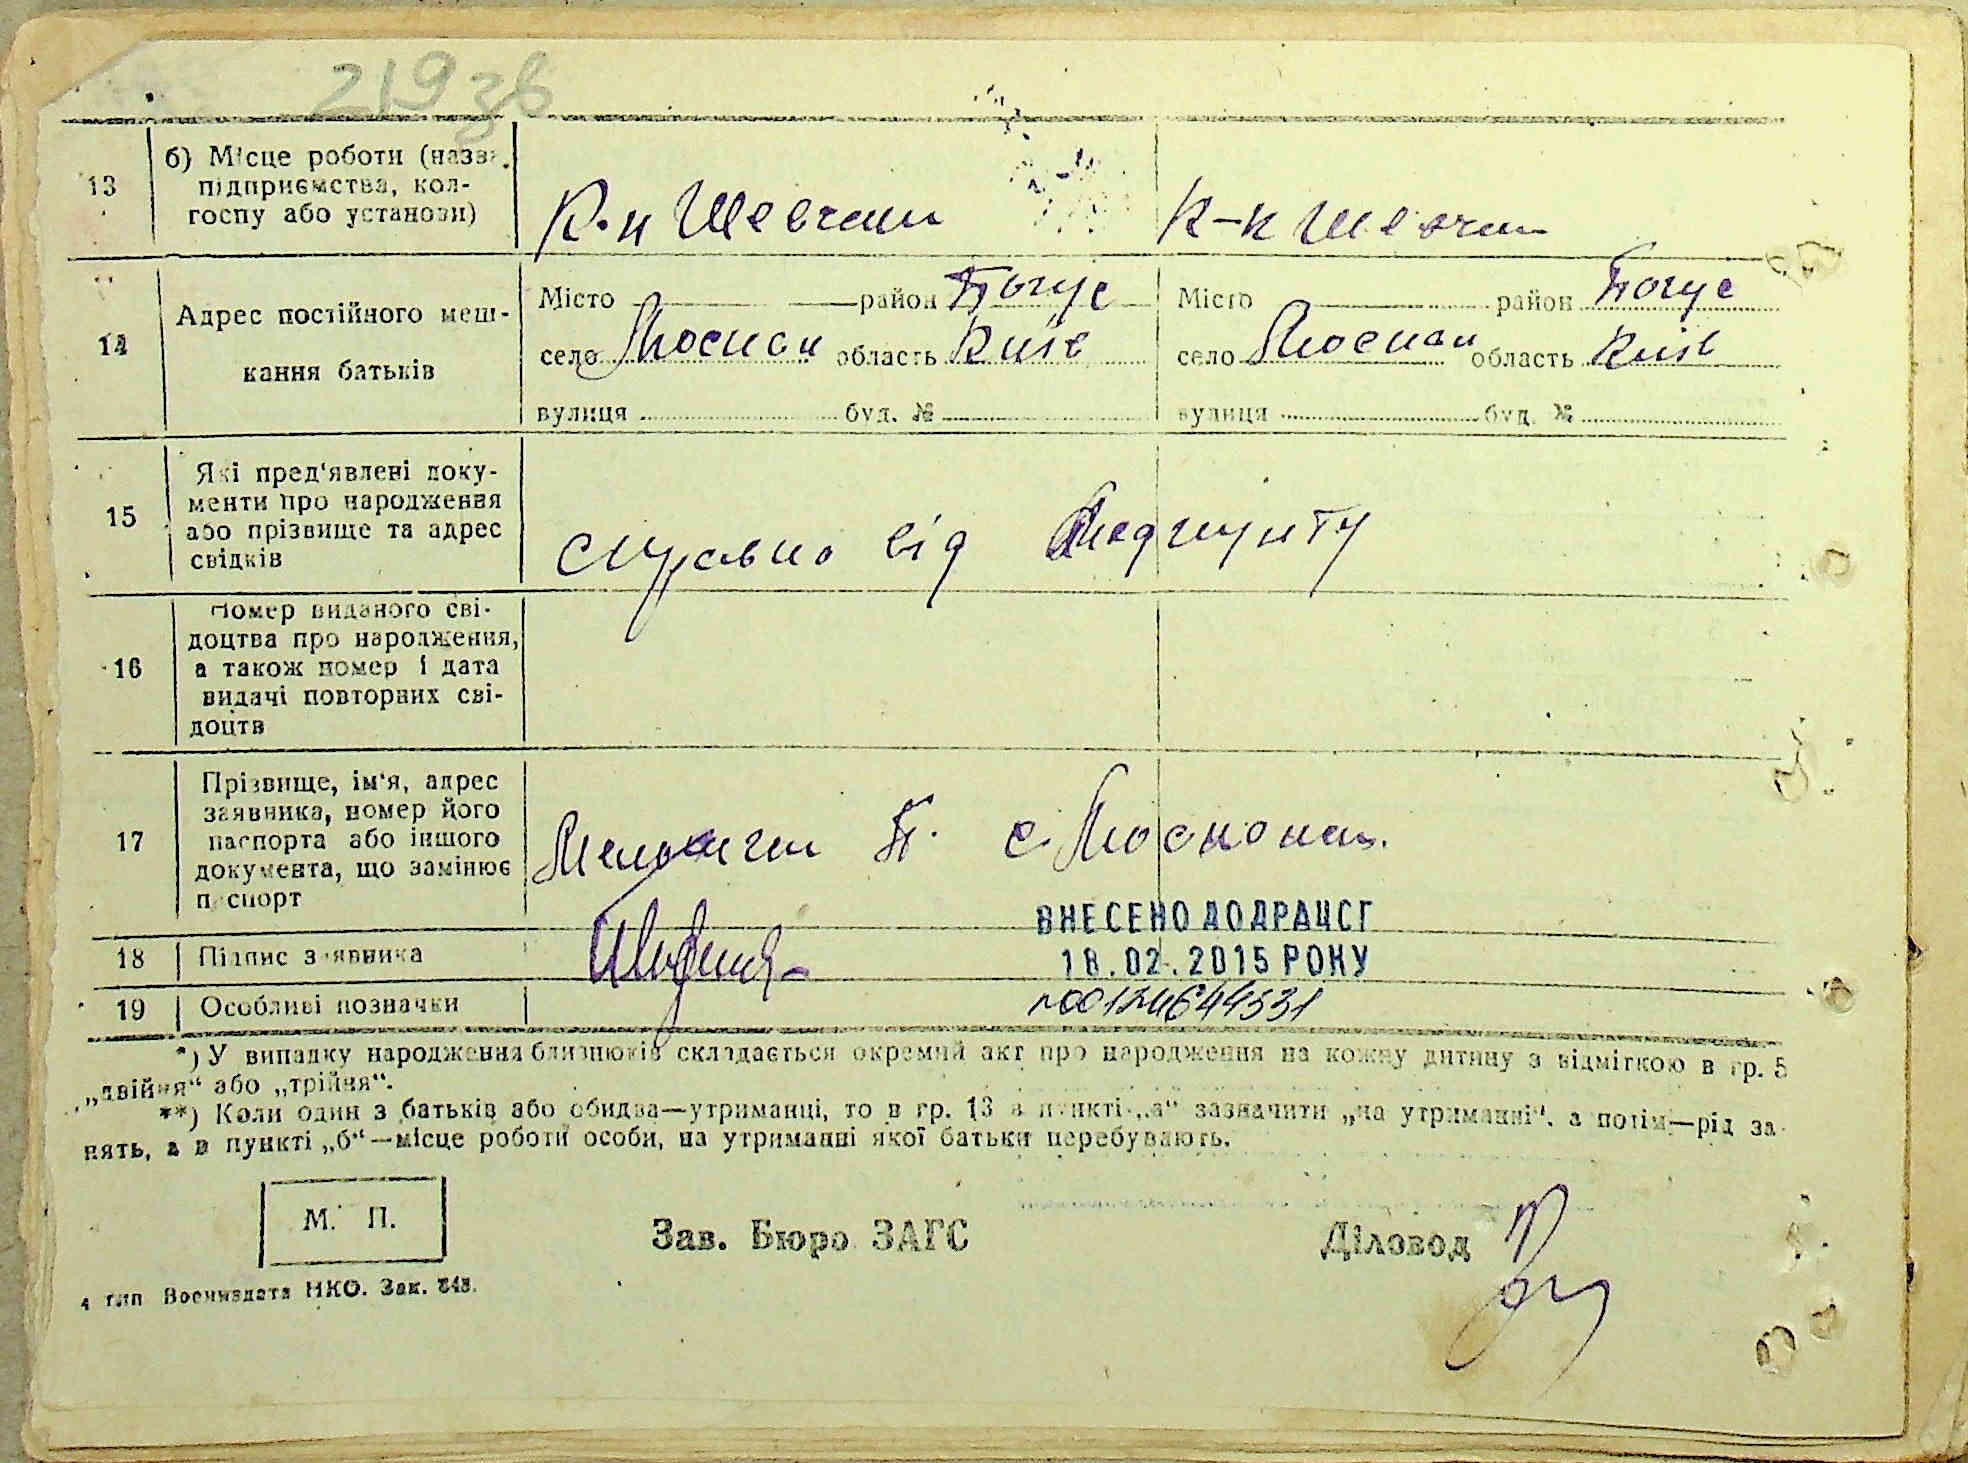 219 зв
13
б) Місце роботи (назва
підприємства, кол-
госпу або установи)
К-п Шевчен К-п Шевчен
14
Адрес постійного меш-
кання батьків
Місто район Богус Місто район Богус
село область Київ село область Київ
вулиця буд. № вулиця буд. №
15
Які пред'явлені доку-
менти про народження
або прізвище та адрес
свідків
від Медпункту
16
Номер виданого сві-
доцтва про народження,
а також номер і дата
видачі повторних сві-
доцтв
17
Прізвище, ім'я, адрес
заявника, номер його
паспорта або іншого
документа, що замінює
паспорт
П. с.
ВНЕСЕНО ДО ДРАЦСГ
18 Підпис заявника
18.02.2015 РОКУ
19 Особливі позначки
№00124644531
*) У випадку народження близнюків складається окремий акт про народження на кожну дитину з відміткою в гр. 5
„двійня“ або „трійня“.
**) Коли один з батьків або обидва—утриманці, то в гр. 13 в пункті „а“ зазначити „на утриманні“, а потім—рід за-
нять, а в пункті „б“—місце роботи особи, на утриманні якої батьки перебувають.
М. П.
Зав. Бюро ЗАГС Діловод
4 тип Воениздата НКО. Зак.